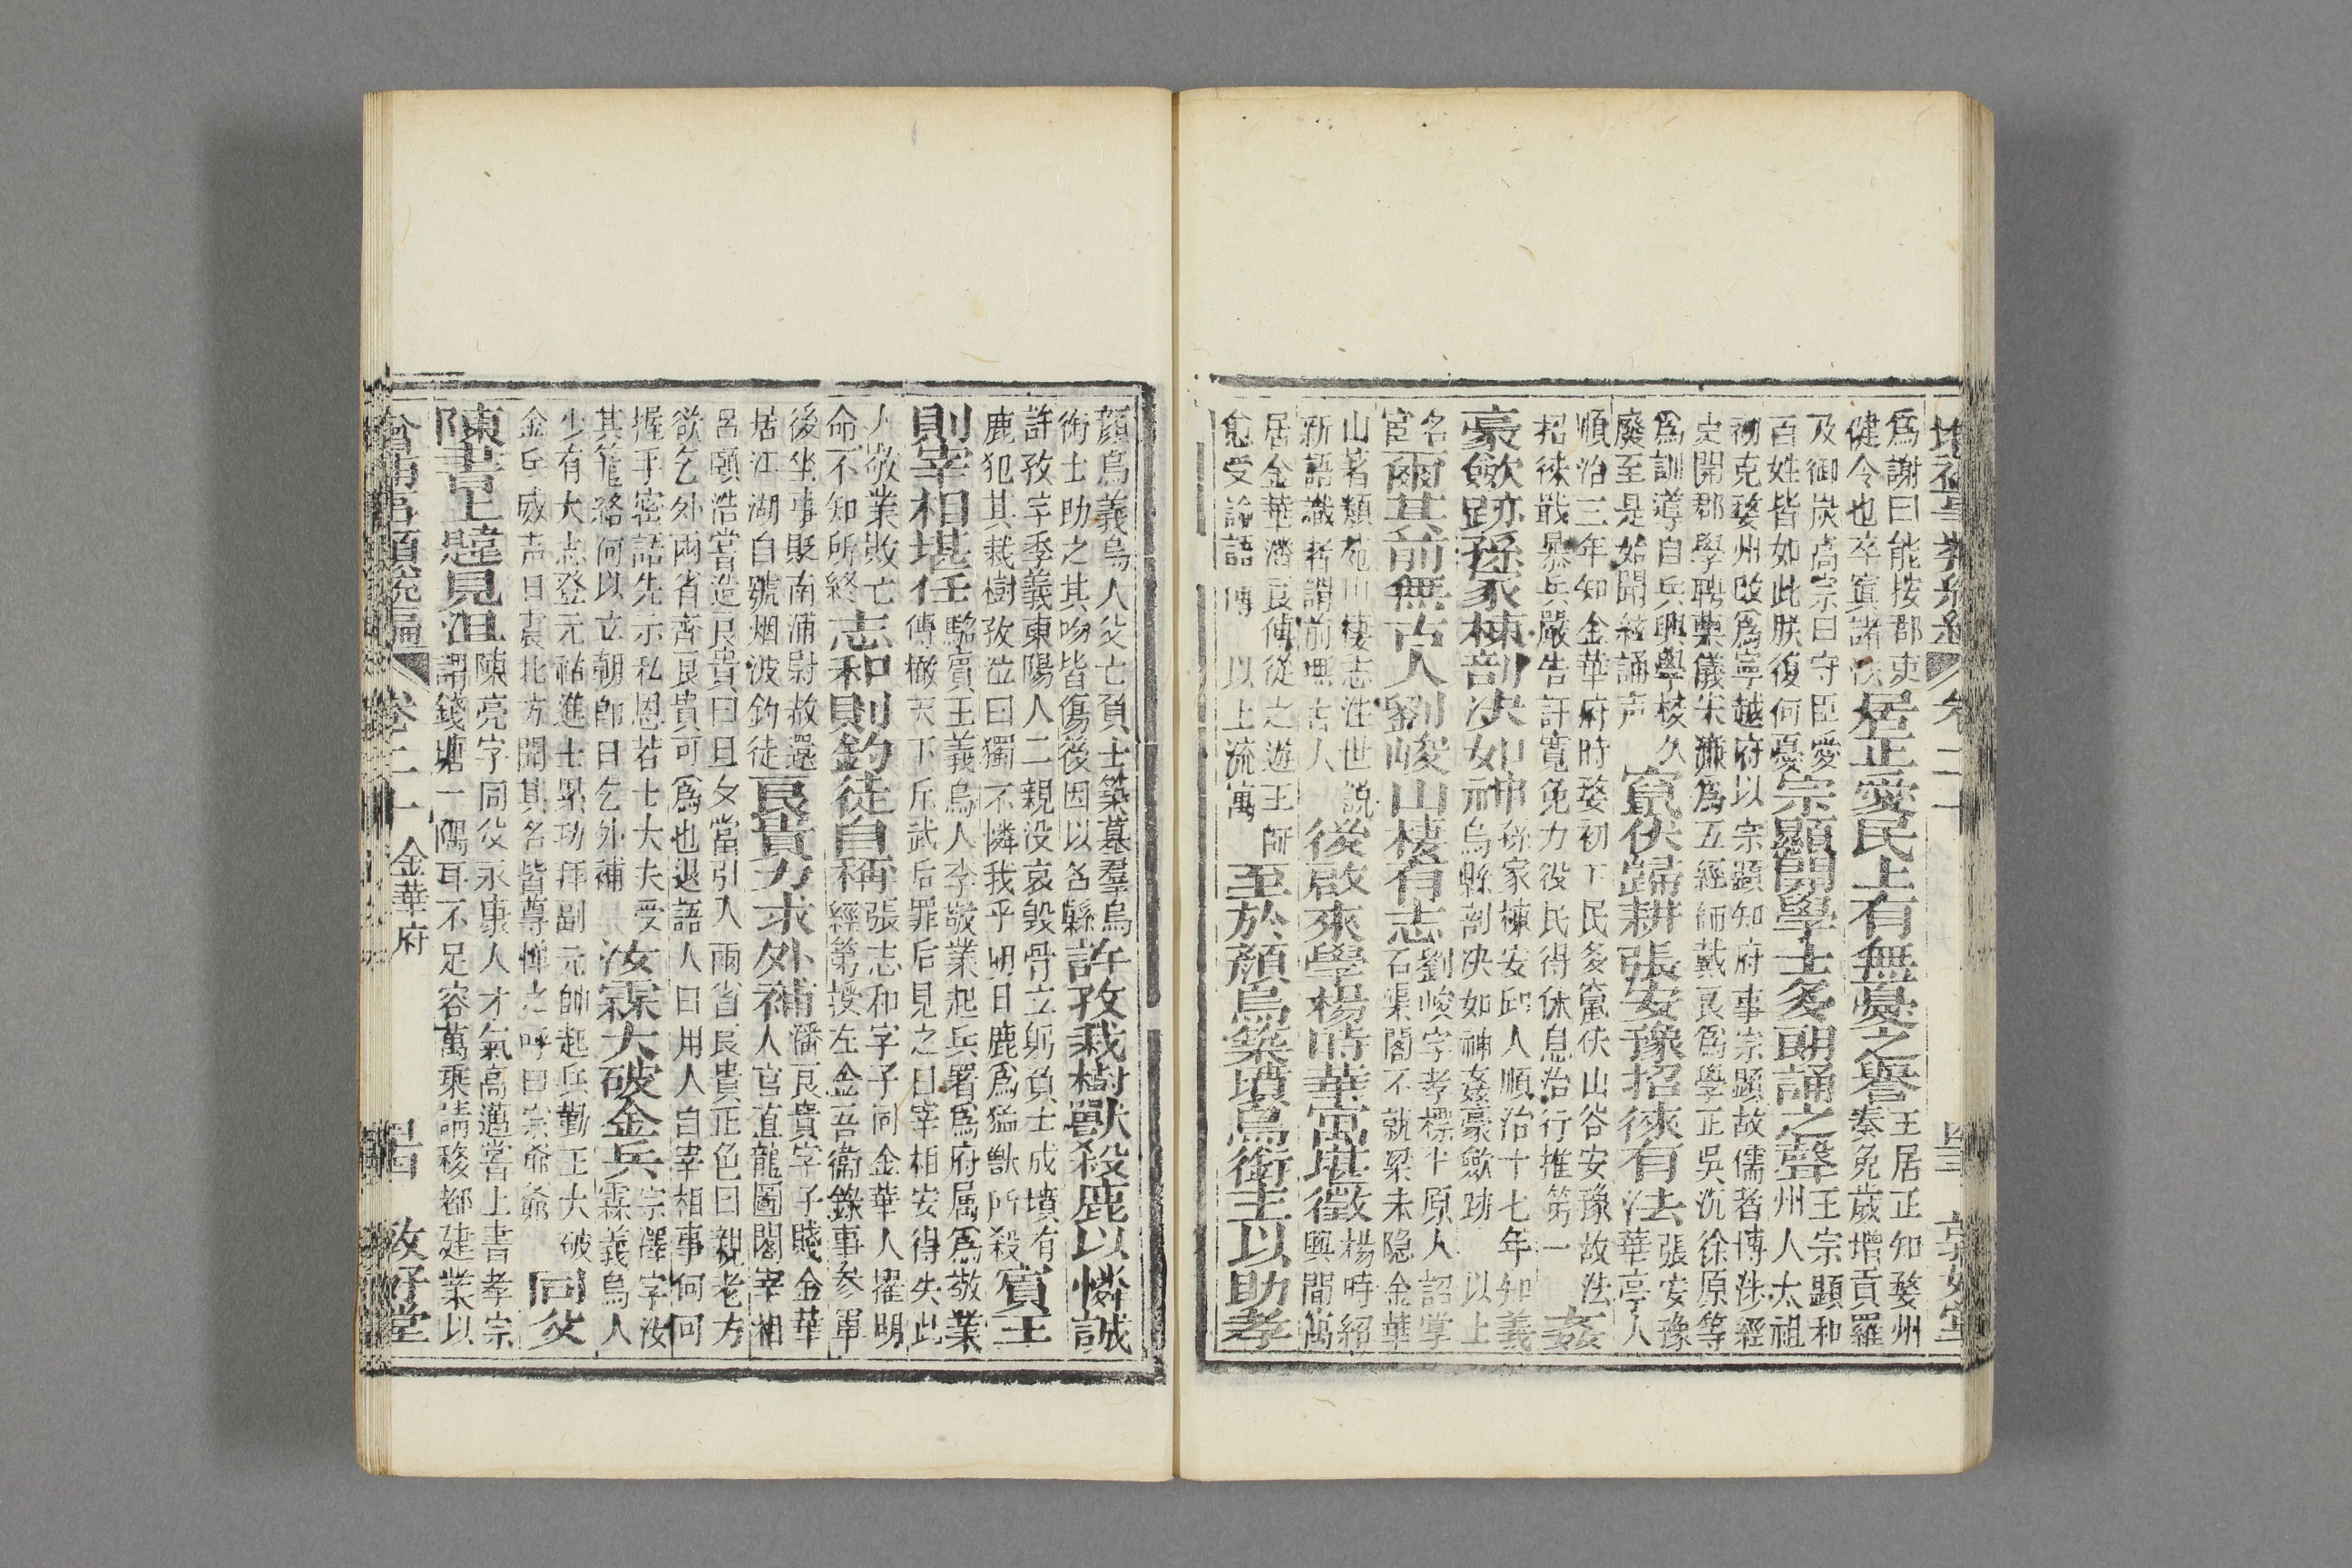 為謝曰能按郡吏
健令也卒寘諸法
居正愛民士有無憂之譽
王居正知婺州
奏免歲增貢羅
及御炭高宗曰守臣愛
百姓皆如此朕復何憂
宗顯開學士多朗誦之聲
王宗顯和
州人太祖
初克婺州改為寧越府以宗顯知府事宗顯故儒者博涉經
史開郡學聘葉儀宋濂為五經師戴良為學正吳沉徐原等
為訓導自兵興學校久
廢至是始聞絃誦声
竄伏歸耕張安豫招徠有法
張安豫
華亭人
順治三年知金華府時婺初下民多竄伏山谷安豫故法
招徠戢暴兵嚴告訐寬免力役民得休息治行推第一
姦
豪歛跡孫家棟剖决如神
孫家棟安邱人順治十七年知義
烏縣剖决如神姦豪歛跡 以上
名
宦
爾其前無古人劉峻山棲有志
劉峻字孝標平原人詔掌
石渠閣不就梁未隐金華
山著類苑山棲志注世說
新語識者謂前無古人
後啟來學楊時華寓堪徵
楊時紹
興間寓
居金華潘良傅從之遊王師
愈受論語 以上流寓
至於顏烏築墳烏銜土以助孝
顏烏義烏人父亡負土築墓羣烏
銜士助之其吻皆傷後因以名縣
許孜栽樹獸殺鹿以憐誠
許孜字季義東陽人二親没哀毀骨立躬負土成墳有
鹿犯其栽樹孜泣曰獨不憐我乎明日鹿為猛獸所殺
賓王
則宰相堪任
駱賓王義烏人李敬業起兵署為府属為敬業
傳檄天下斥武后罪后見之曰宰相安得失此
人敬業敗亡
命不知所終
志和則釣徒自稱
張志和字子同金華人擢明
經第授左金吾衞錄事参軍
後坐事貶南浦尉赦還
居江湖自號烟波釣徒
良貴力求外補
潘良貴字子賤金華
人官直龍圖閣宰相
呂頤浩嘗造良貴曰旦夕當引入兩省良貴正色曰親老方
欲乞外兩省齊良貴可為也退語人曰用人自宰相事何可
握手密語先示私恩若士大夫受
其籠絡何以立朝即日乞外補
汝霖大破金兵
宗澤字汝
霖義烏人
少有大志登元祐進士累功拜副元帥起兵勤王大破
金兵威声日震北方聞其名皆尊憚之呼曰宗爺爺
同父
陳書上違見沮
陳亮字同父永康人才氣高邁嘗上書孝宗
謂錢塘一隅耳不足容萬乗請移都建業以
卷二十一 金華府